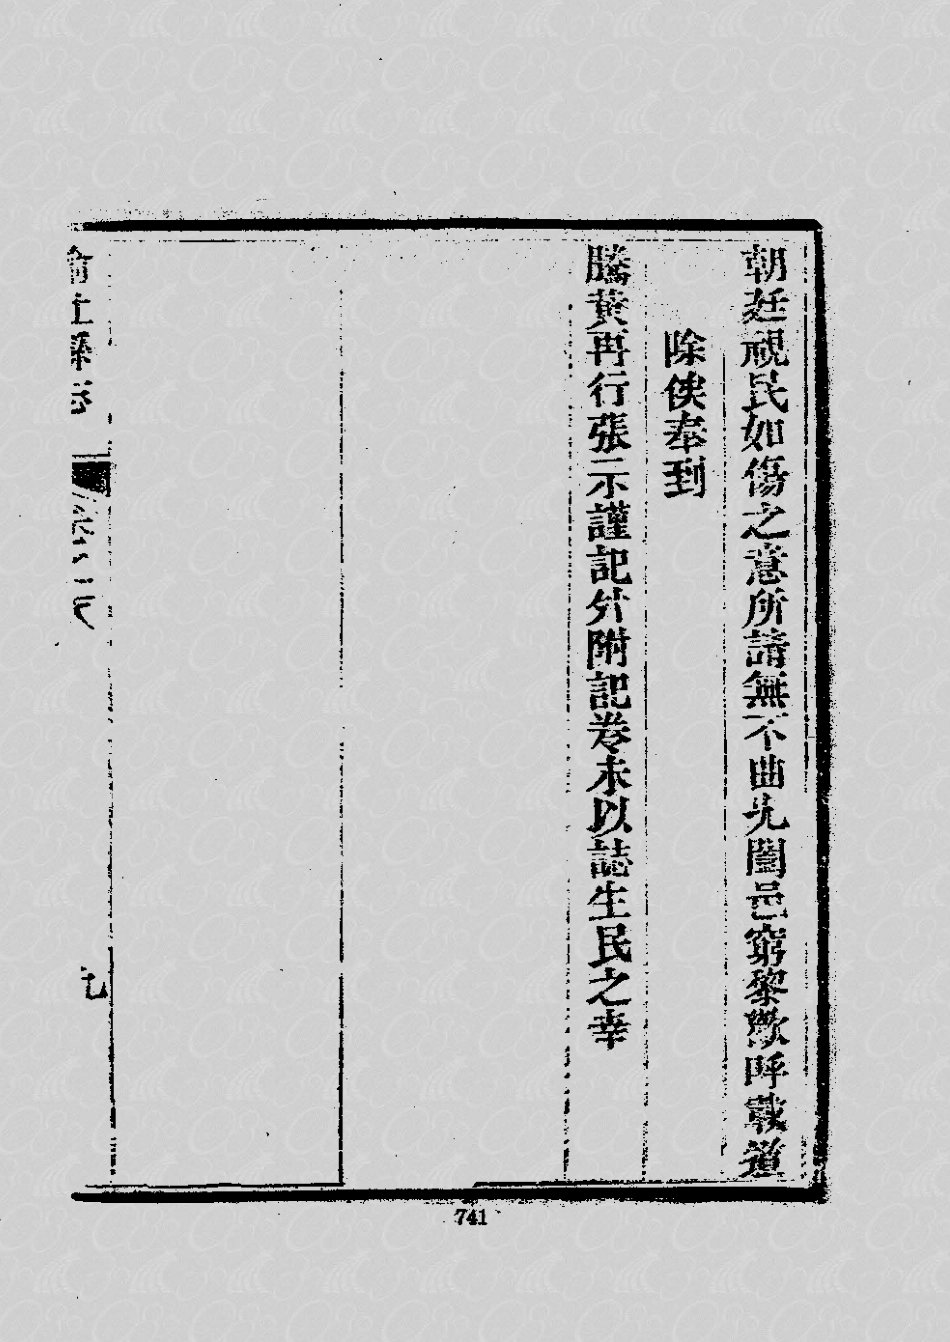 朝廷視民如傷之意所請無不曲允闔邑窮黎歡呼載道
除俟奉到
謄黃再行張示謹記外附記卷末以誌生民之幸
榆社縣志
卷之
九
741